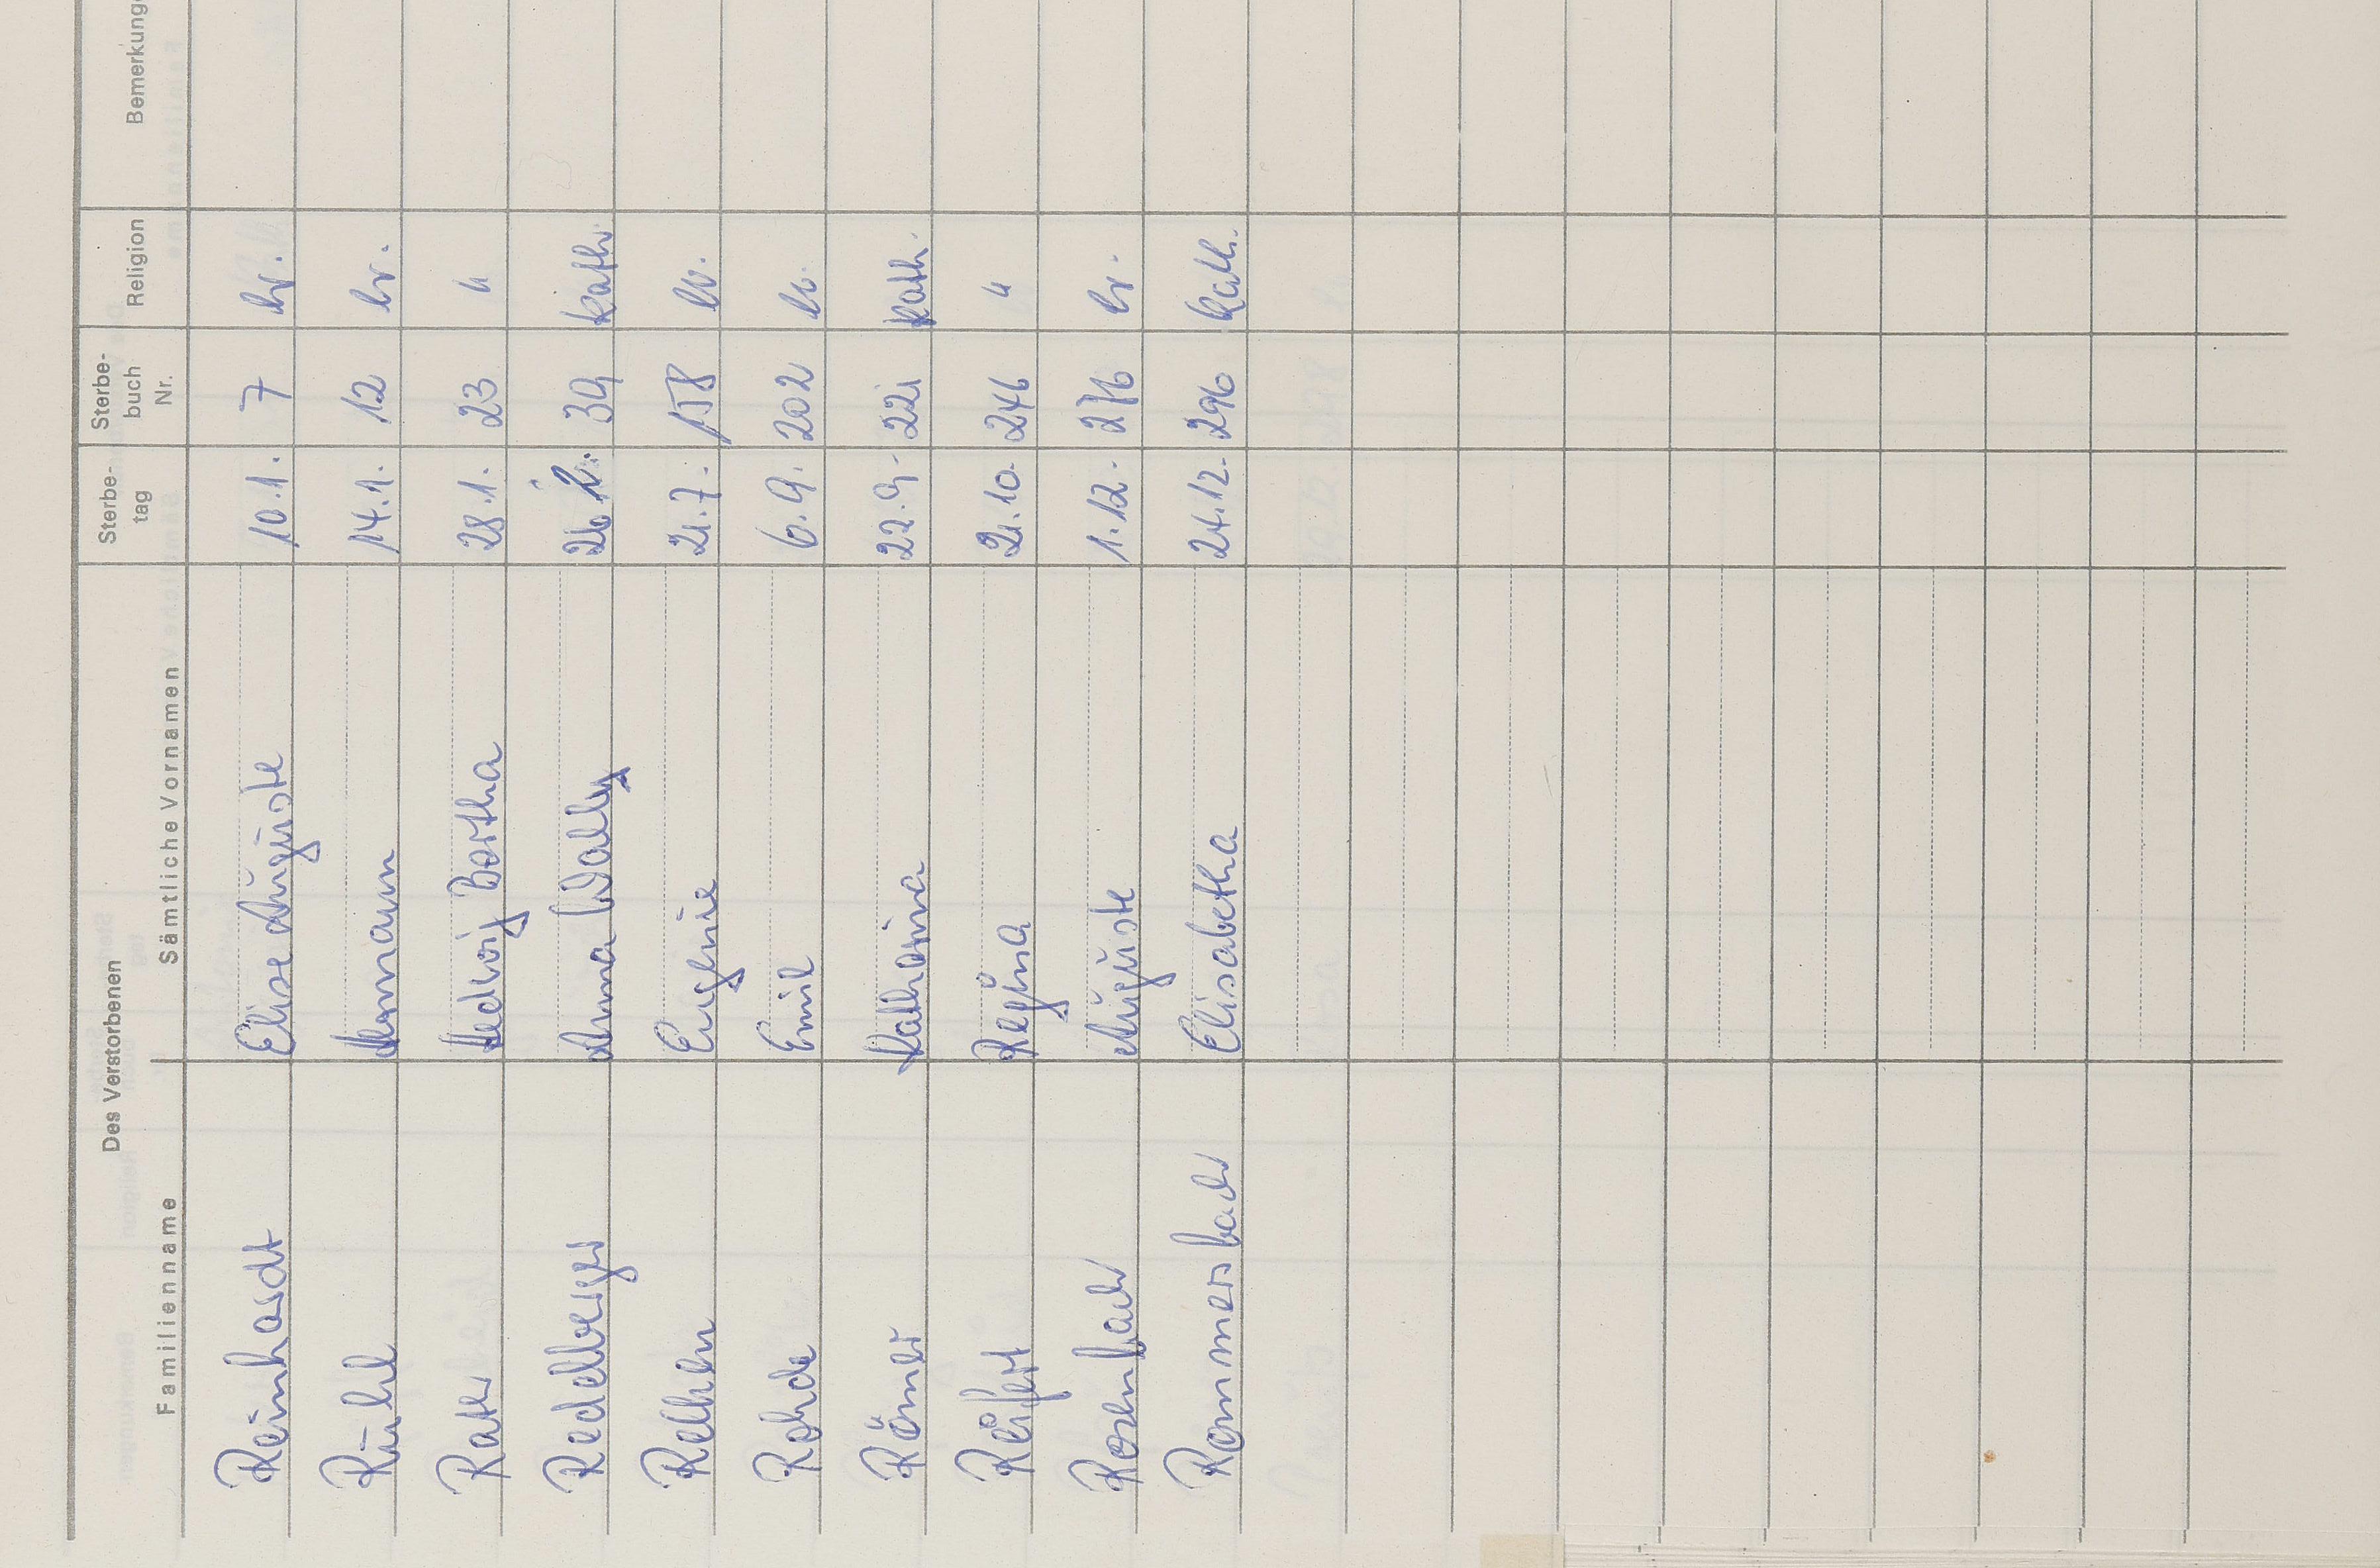 Des Verstorbenen
Familienname Sämtliche Vornamen Sterbe-tag Sterbe-buch Nr. Religion Bemerkung
Reinhardt Elise Auguste 10.1. 7 ev.
Rühl Hermann 14.1. 12 ev.
Rater Hedwig Bertha 28.1. 23 "
Redelberger Anna Wally 26. 39 kath.
Eugenie 21.7. 158 ev.
Rohde Emil 6.9. 202 ev.
Römer Katharina 22.9. 221 kath.
Reifert Regina 21.10. 246 "
Rosenbach Auguste 1.12. 276 ev.
Rommersbach Elisabetha 24.12. 296 kath.